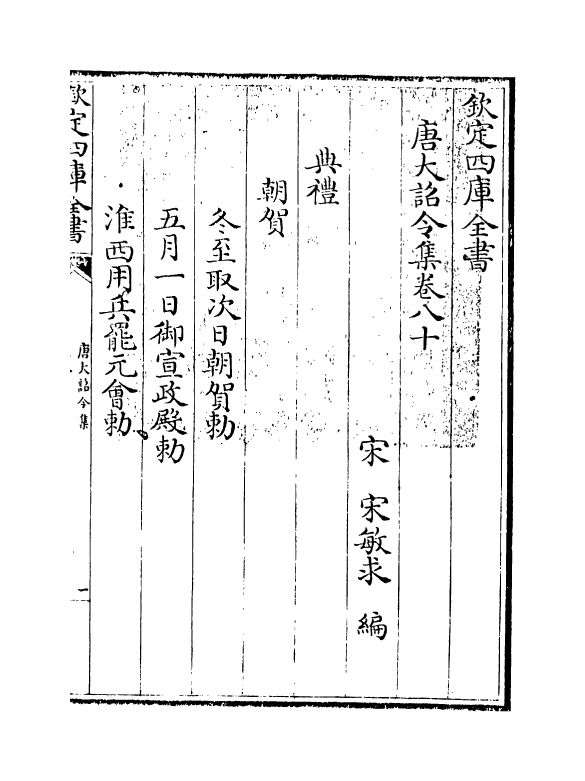 欽定四庫全書
唐大詔令集卷八十
宋 宋敏求 編
典禮
朝賀
冬至取次日朝賀勅
五月一日御宣政殿勅
淮西用兵罷元會勅
欽定四庫全書
唐大詔令集
一